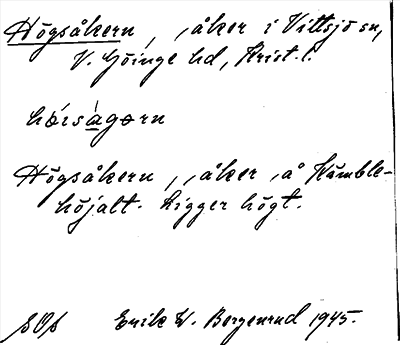 Högsåkern, , åker i Vittsjö sn,
V. Göinge hd, Krist. l.
høi̯sàgørn
Högsåkern , , åker , å Humble-
höjalt. Ligger högt.
SOA Erik W. Bergenrud 1945.